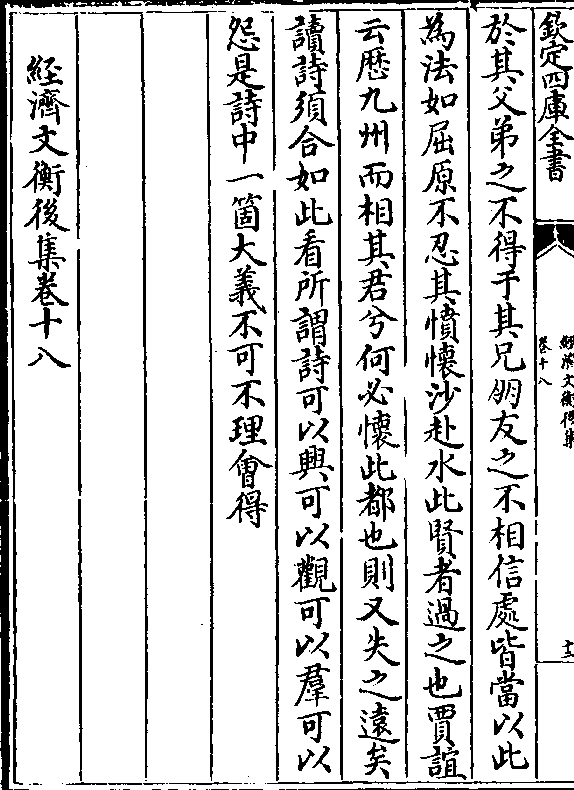 欽定四庫全書
經濟文衡後集
卷十八
十三
於其父弟之不得于其兄朋友之不相信處皆當以此
為法如屈原不忍其憤懷沙赴水此賢者過之也賈誼
云歴九州而相其君兮何必懷此都也則又失之遠矣
讀詩須合如此看所謂詩可以興可以觀可以羣可以
怨是詩中一箇大義不可不理會得
經濟文衡後集卷十八